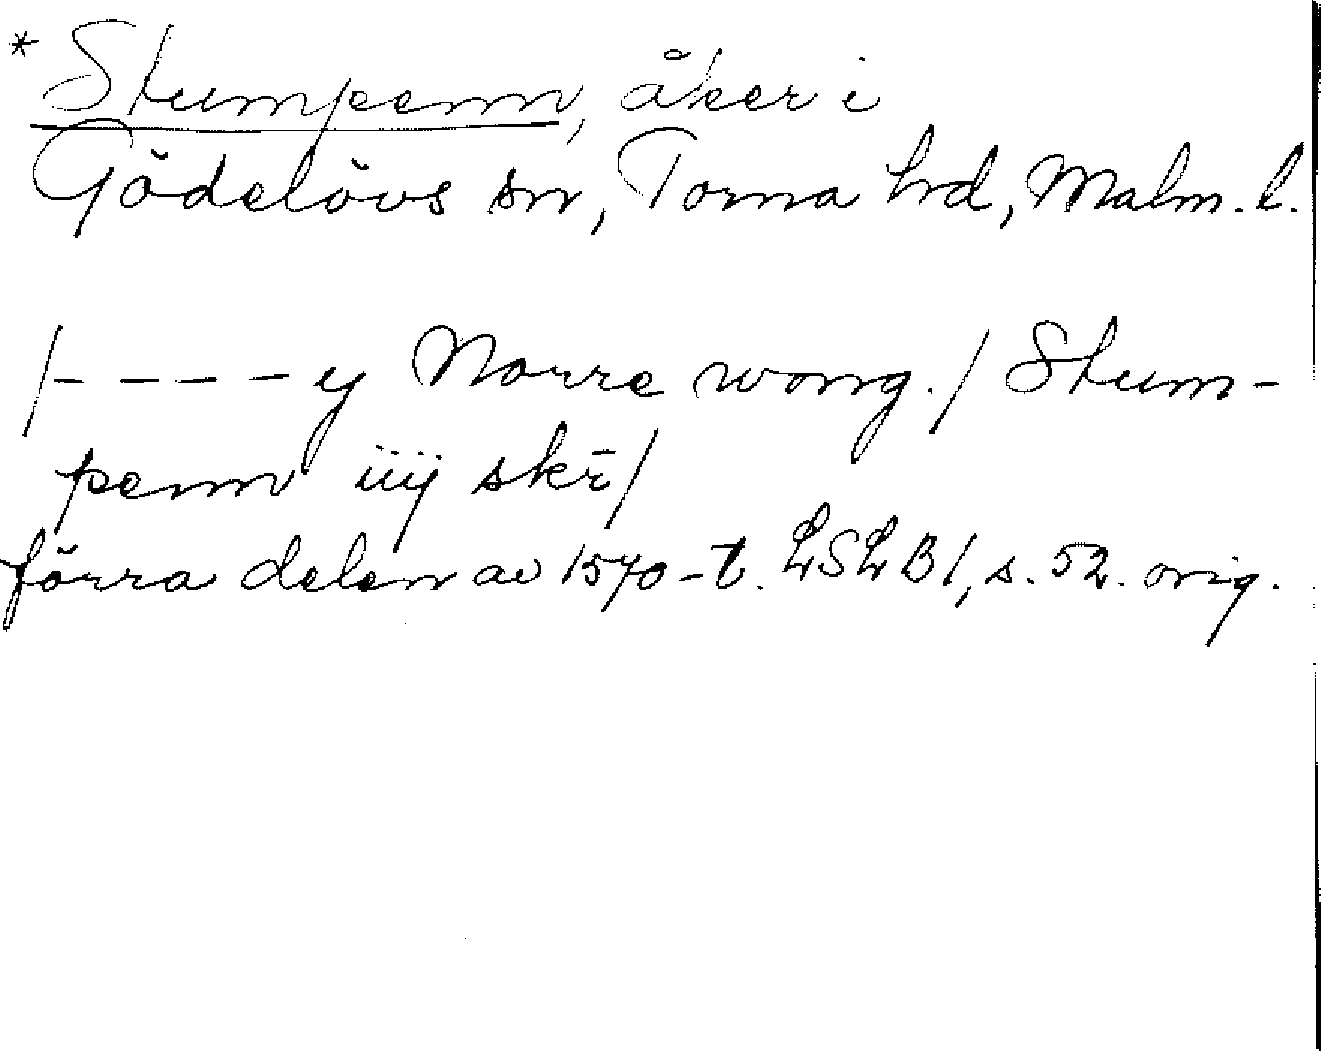 *Stumpenn, åker i
Gödelövs sn, Torna hd, Malm. l.
/- - - - y Norre wong./ Stum-
penn iiij skr̄/
förra delen av 1570-t. LSLB 1, s. 52. orig.